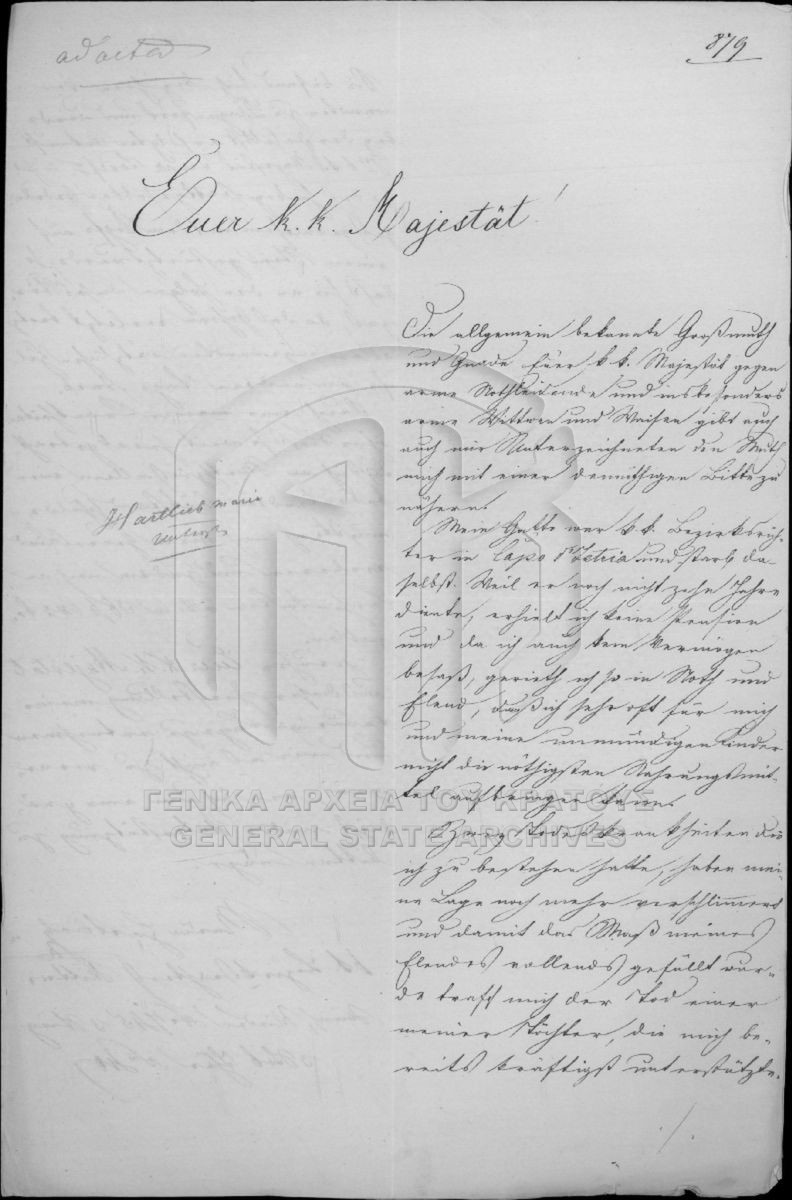 ad acta
879
Euer K. K. Majestät!
Die allgemein bekannte Großmuth
und Gnade Euer k k. Majestät gegen
arme Nothleidende und insbesonders
arme Wittwen und Waisen gibt auch
auch mir Unterzeichneten den Muth
mich mit einer demüthigen Bitte zu
nähern.
Hartlieb Marie
Mein Gatte war k. k. Bezirksrich-
ter in Capo d'Istria und starb da-
selbst. Weil er noch nicht zehn Jahre
diente, erhielt ich keine Pension
und da ich auch kein Vermögen
besaß, gerieth ich so in Noth und
Elend, daß ich sehr oft für mich
und meine unmündigen Kinder
nicht die nöthigsten Nahrungsmit-
tel aufbringen kann.
ΓΕΝΙΚΑ ΑΡΧΕΙΑ ΤΟΥ ΚΡΑΤΟΥΣ
GENERAL STATE ARCHIVES
Zwey Todeskrankheiten die
ich zu bestehen hatte, haben mei-
ne Lage noch mehr verschlimmert
und damit das Maß meines
Elendes vollends gefüllt wur-
de traff mich der Tod einer
meiner Töchter, die mich be-
reits kräftigst unterstützte.
./.